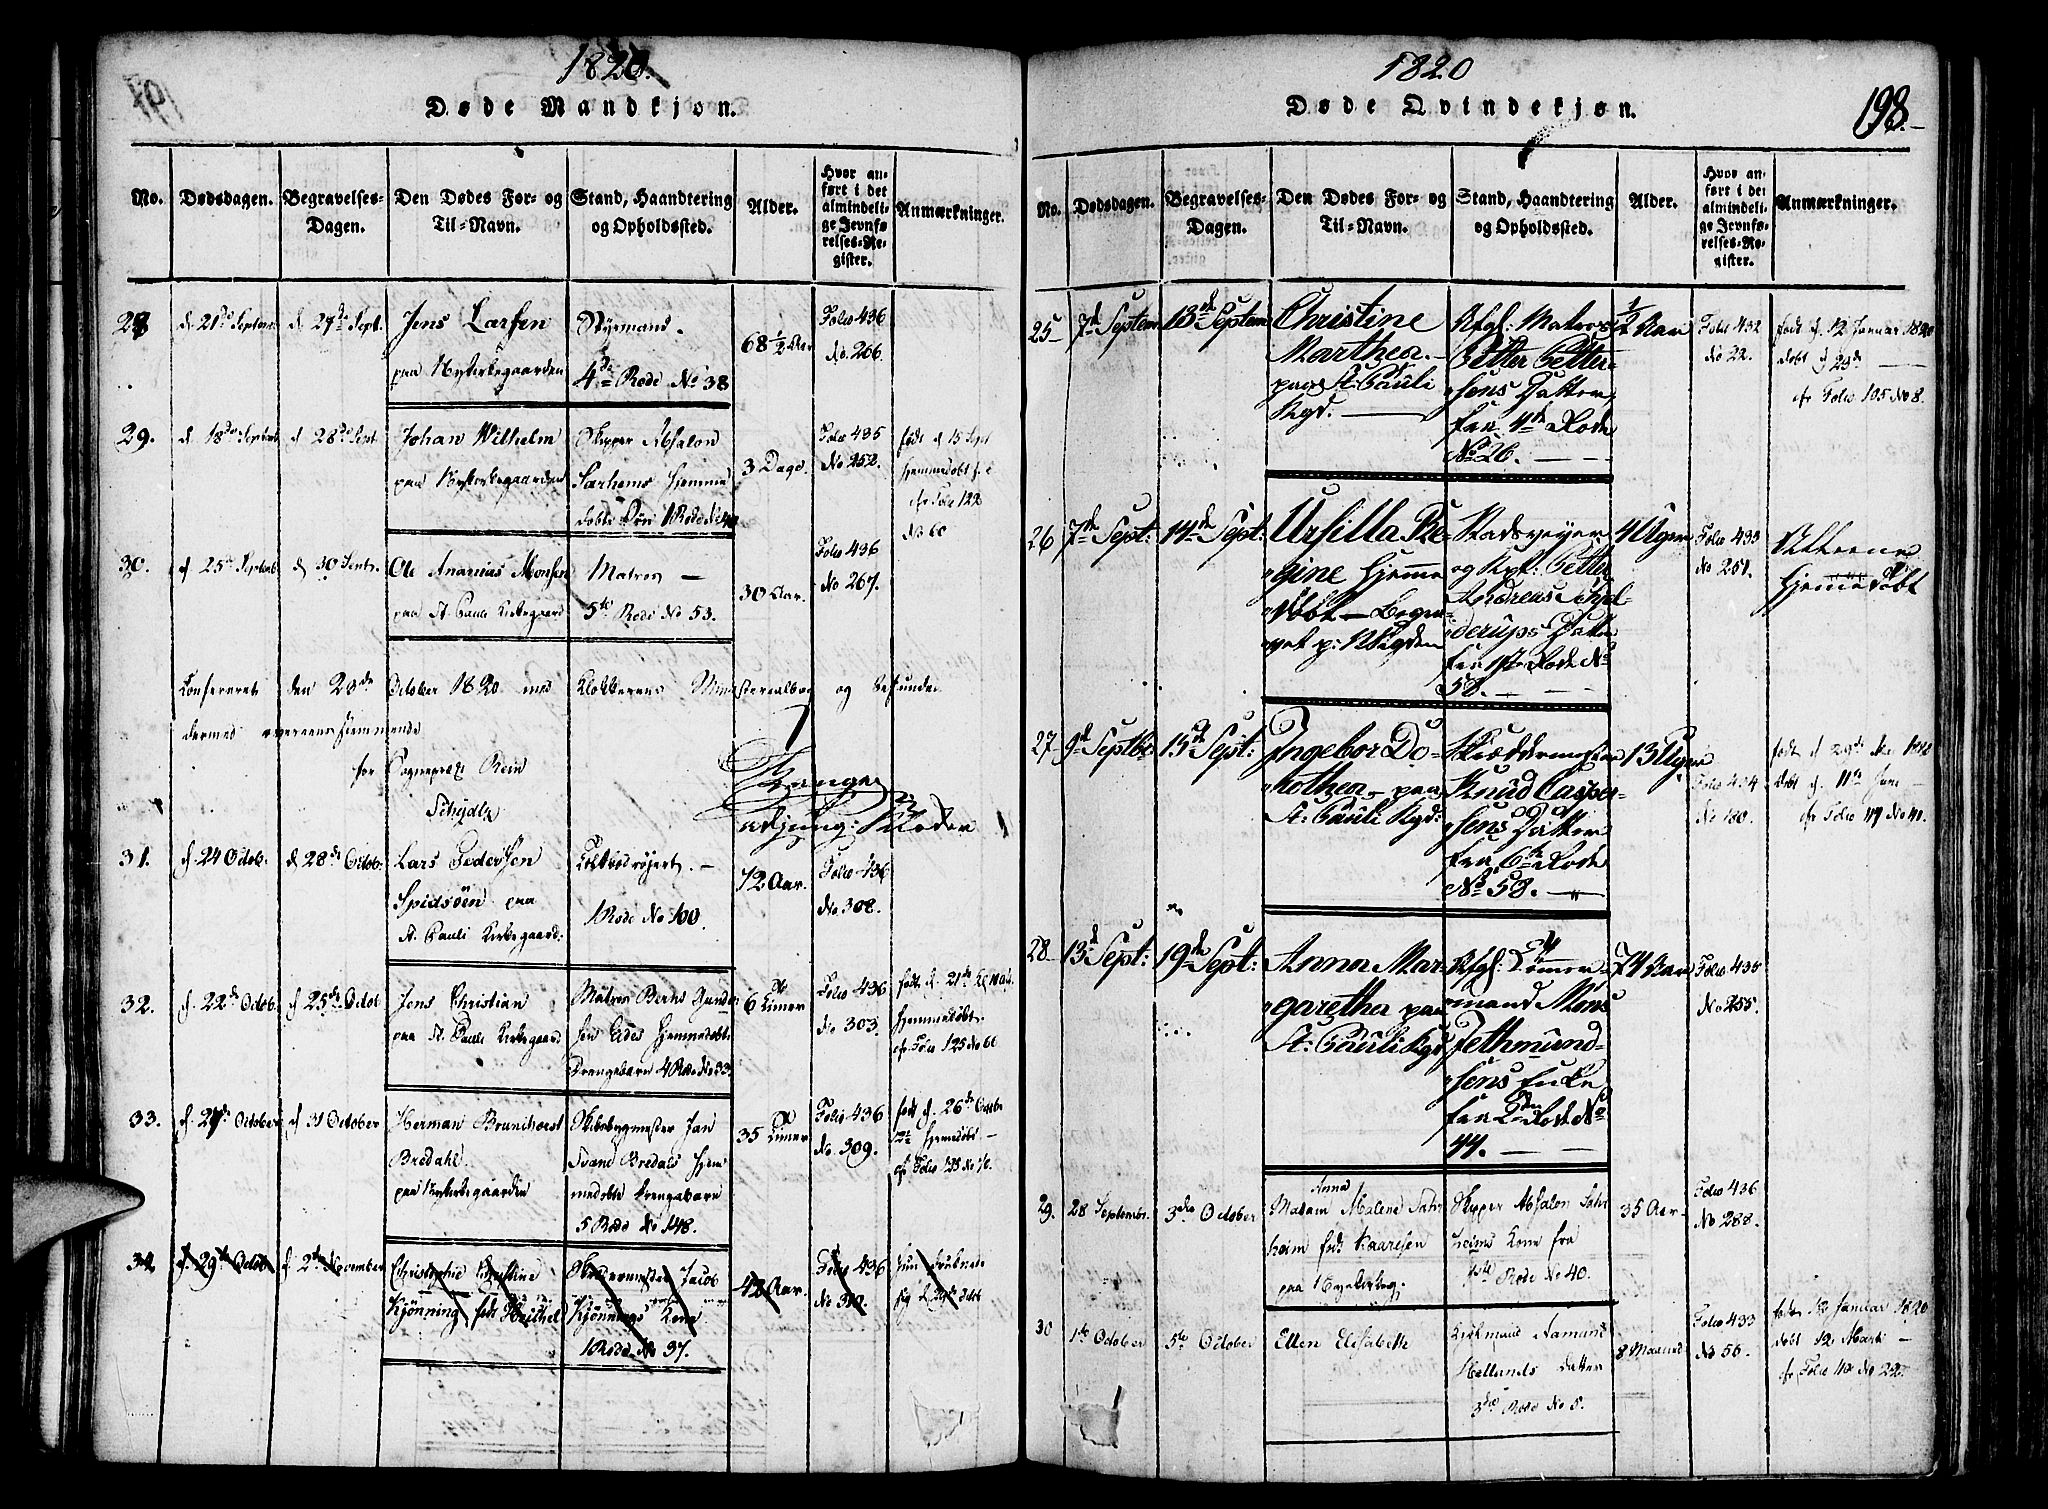 1820.
Døde Mandkjøn.
No.
Dødsdagen.
Begravelses-
Dagen.
Den Dødes For- og
Til-Navn.
Stand, Haandtering
og Opholdssted.
Alder.
Hvor an-
ført i det
almindeli-
ge Jevnfø-
relses-Re-
gister.
Anmærkninger.
28
d. 21de Septem.
d. 27de Sept.
Jens Larsen
paa Nykirkegaarden
Styrmand.
4de Rode No 38
68 1/2 Aar
Folio 436
No. 266.
29.
d. 18de Septemb
d. 28de Sept
Johan Wilhelm
paa Nykirkegaarden
Skipper Absalon
Sarheims Hjemme
døbte Søn 1 Rode No 40
3 Dage.
Folio 435
No 252.
født d. 15 Sept
hjemmedøbt
cfr Folio 122
No 60
30.
d. 25de Septemb
d. 30 Septr.
Ole Ananias Monsen
paa St. Pauli Kirkegaard
Matros —
5te Rode No 53.
30 Aar.
Folio 436
No 267.
Confereret den 23de October 1820 med Klokkerens Ministerialbog og befunden
dermed overeensstemmende
for Sogneprest Rein
31.
d. 24 Octob.
d. 28de Octob.
Lars Pedersen
Spidsøen paa
St. Pauli Kirkegaard.
1 Rode No 100.
72 Aar.
Folio 436
No. 308.
32.
d. 22de Octob.
d. 25de Octob
Jens Christian
paa St. Pauli Kirkegaard
Matros Bernt Gunder
sen Eides Hjemmedøbte
Drengebarn 4 Rode No 53.
6 Timer
Folio 436
No 303.
Hjemmedøbt
cfr Folio 125 No 66
33.
d. 27de October
d. 31 October
Herman Brunchorst
Bredahl.
paa Nykirkegaarden
Skibsbygmester Jan
Svane Bredals Hjem
medøbte Drengebarn
5 Rode No 148.
35 Timer
Folio 436
No. 309.
født d. 26de Octobr
Hjemmedøbt —
34.
d. 29de Octob
d. 2de November
Christophie Christine
Kjønning
Jacob
Kjønnings Kone
1 Rode No 37.
42 Aar.
Folio 436
No 310.
1820
Døde Qvindekjøn.
198.
No.
Dødsdagen.
Begravelses-
Dagen.
Den Dødes For- og
Til-Navn.
Stand, Haandtering
og Opholdssted.
Alder.
Hvor an-
ført i det
almindeli-
ge Jevnfø-
relses-Re-
gister.
Anmærkninger.
25
7de Septem
13de Septem
Christine
Marthea.
paa St: Pauli
Kgd.
Afgl: Matros
Petter Petter-
sens Datter
fra 4de Rode
No 26.
1/2 Aar
Folio 432
No 22.
født d. 12 Januar 1820
døbt d. 23de
cfr Folio 105 No 8.
26
7de Sept:
14de Sept:
Ursilla Re-
gine Hjemme
døbt — Begra-
vet p: N Kigden
Stadsveyer
og Kpt: Petter
Andreas Syl-
derups Datter
fra 1ste Rode No
58.
4 Uger
Folio 433
No 251.
Alleene
Hjemedøbt
27
9de Septbr
15de Sept:
Ingebor Do-
rothea. paa
St: Pauli Kgd:
Skræddermester
Knud Casper-
sens Datter
fra 6te Rode
No 58.
13 Uger
Folio 434
No 180.
døbt d. 11te Juni
cfr Folio 119 No 41.
28
13de Sept:
19de Sept:
Anna Mar-
garetha paa
St: Pauli Kgd
Afgl: Tømmer-
mand Mons
Jethmund-
sens Enke
fra 2den Rode No
44.
74 Aar
Folio 436
No 255.
29.
28 Septembr.
3die October
Anna
Madam Malene Sahr
heim født Kaaresen
paa Nykirkeg:
Skipper Absalon Sahr
heims Kone fra
1ste Rode No 40.
35 Aar.
Folio 436
No 288.
30
1ste October
5te October
Ellen Elisabeth
Aamund
Hellands Datter
3die Rode No 5.
8 Maaned
Folio 433
No 56.
født 12 Januar 1820
døbt 12 Marti —
cfr Folio 110 No 22.